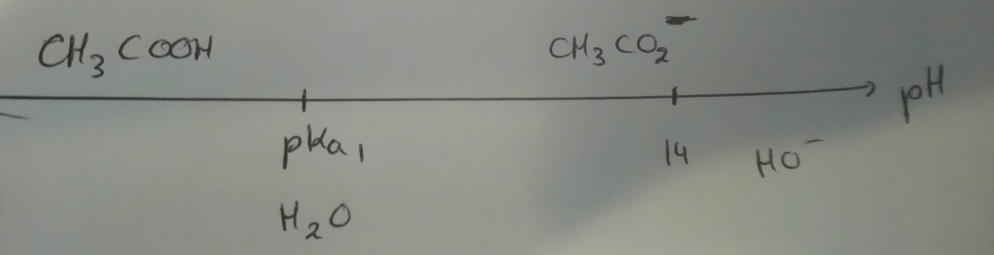 CH₃COOH CH₃CO₂⁻
pH
pKa₁ 14 HO⁻
H₂O